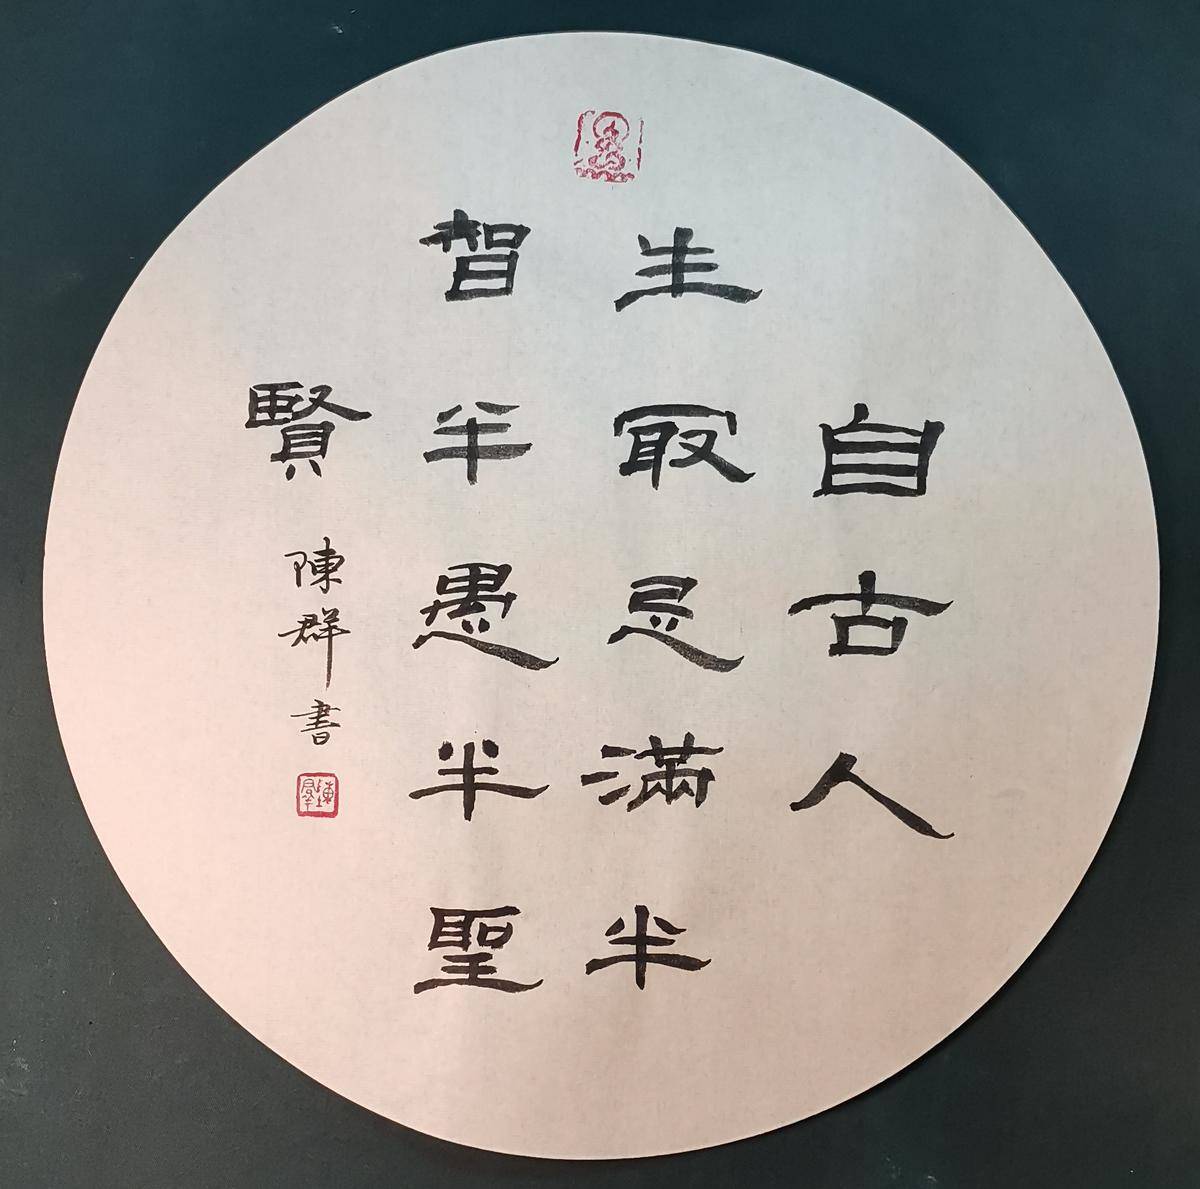 自古人
生冣忌滿半
智半愚半聖
賢
陳群書
陳羣